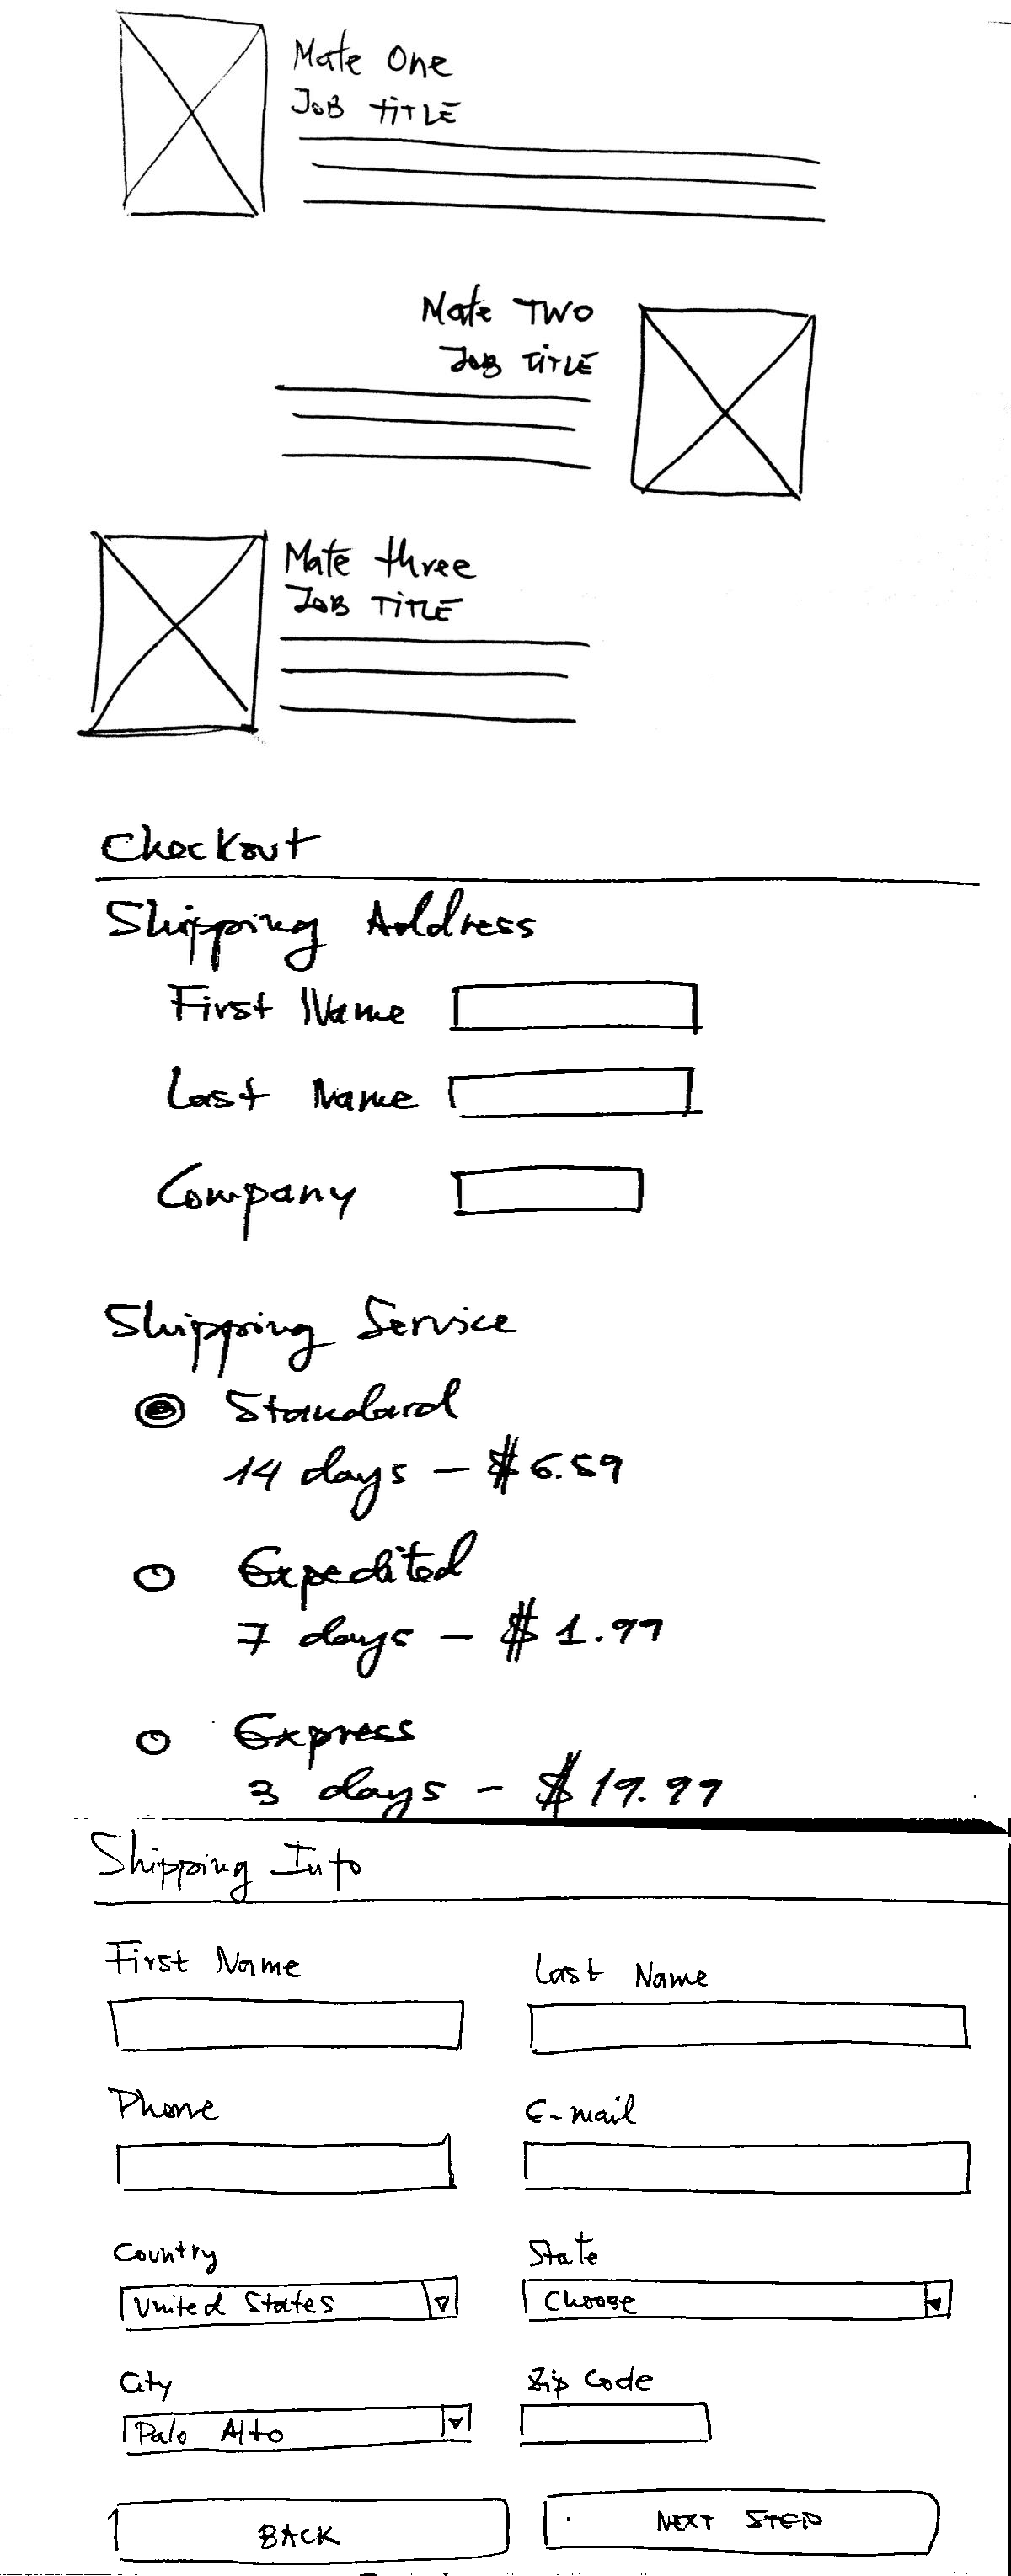 Mate One
JOB TITLE
Mate TWO
JOB TITLE
Mate three
JOB TITLE
Checkout
Shipping Address
First Name
Last Name
Company
Shipping Service
Standard
14 days – $6.59
Expedited
7 days – $1.99
Express
3 days – $19.99
Shipping Info
First Name Last Name
Phone E-mail
Country State
United States Choose
City Zip Code
Palo Alto
BACK NEXT STEP